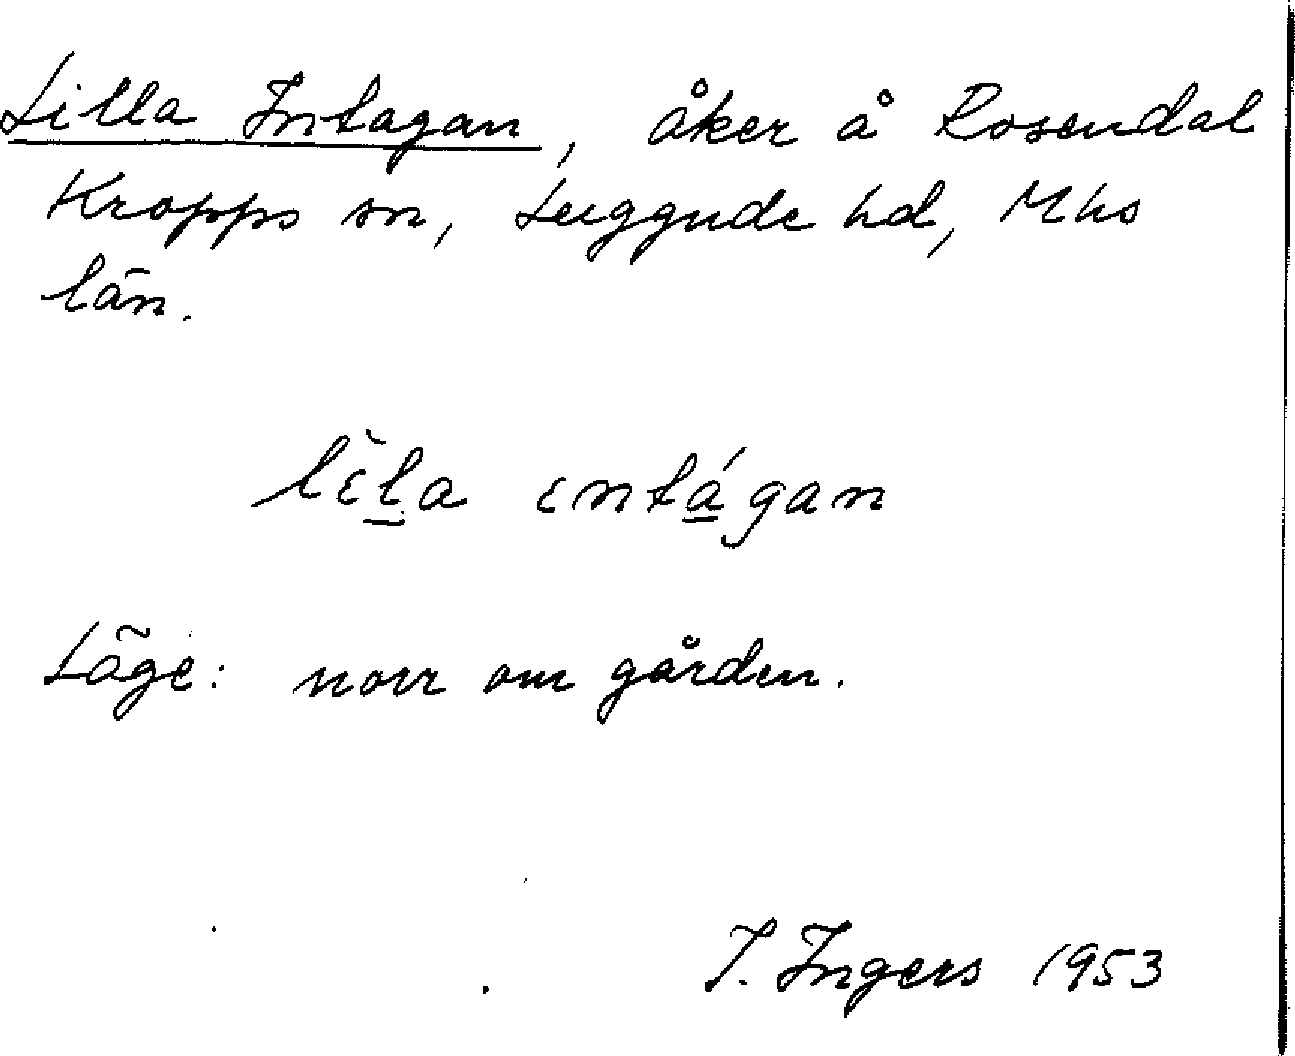 Lilla Intagan, åker å Rosendal
Kropps sn, Luggude hd, Mhs
län.
lὶla intágan
Läge: norr om gården.
I. Ingers 1953